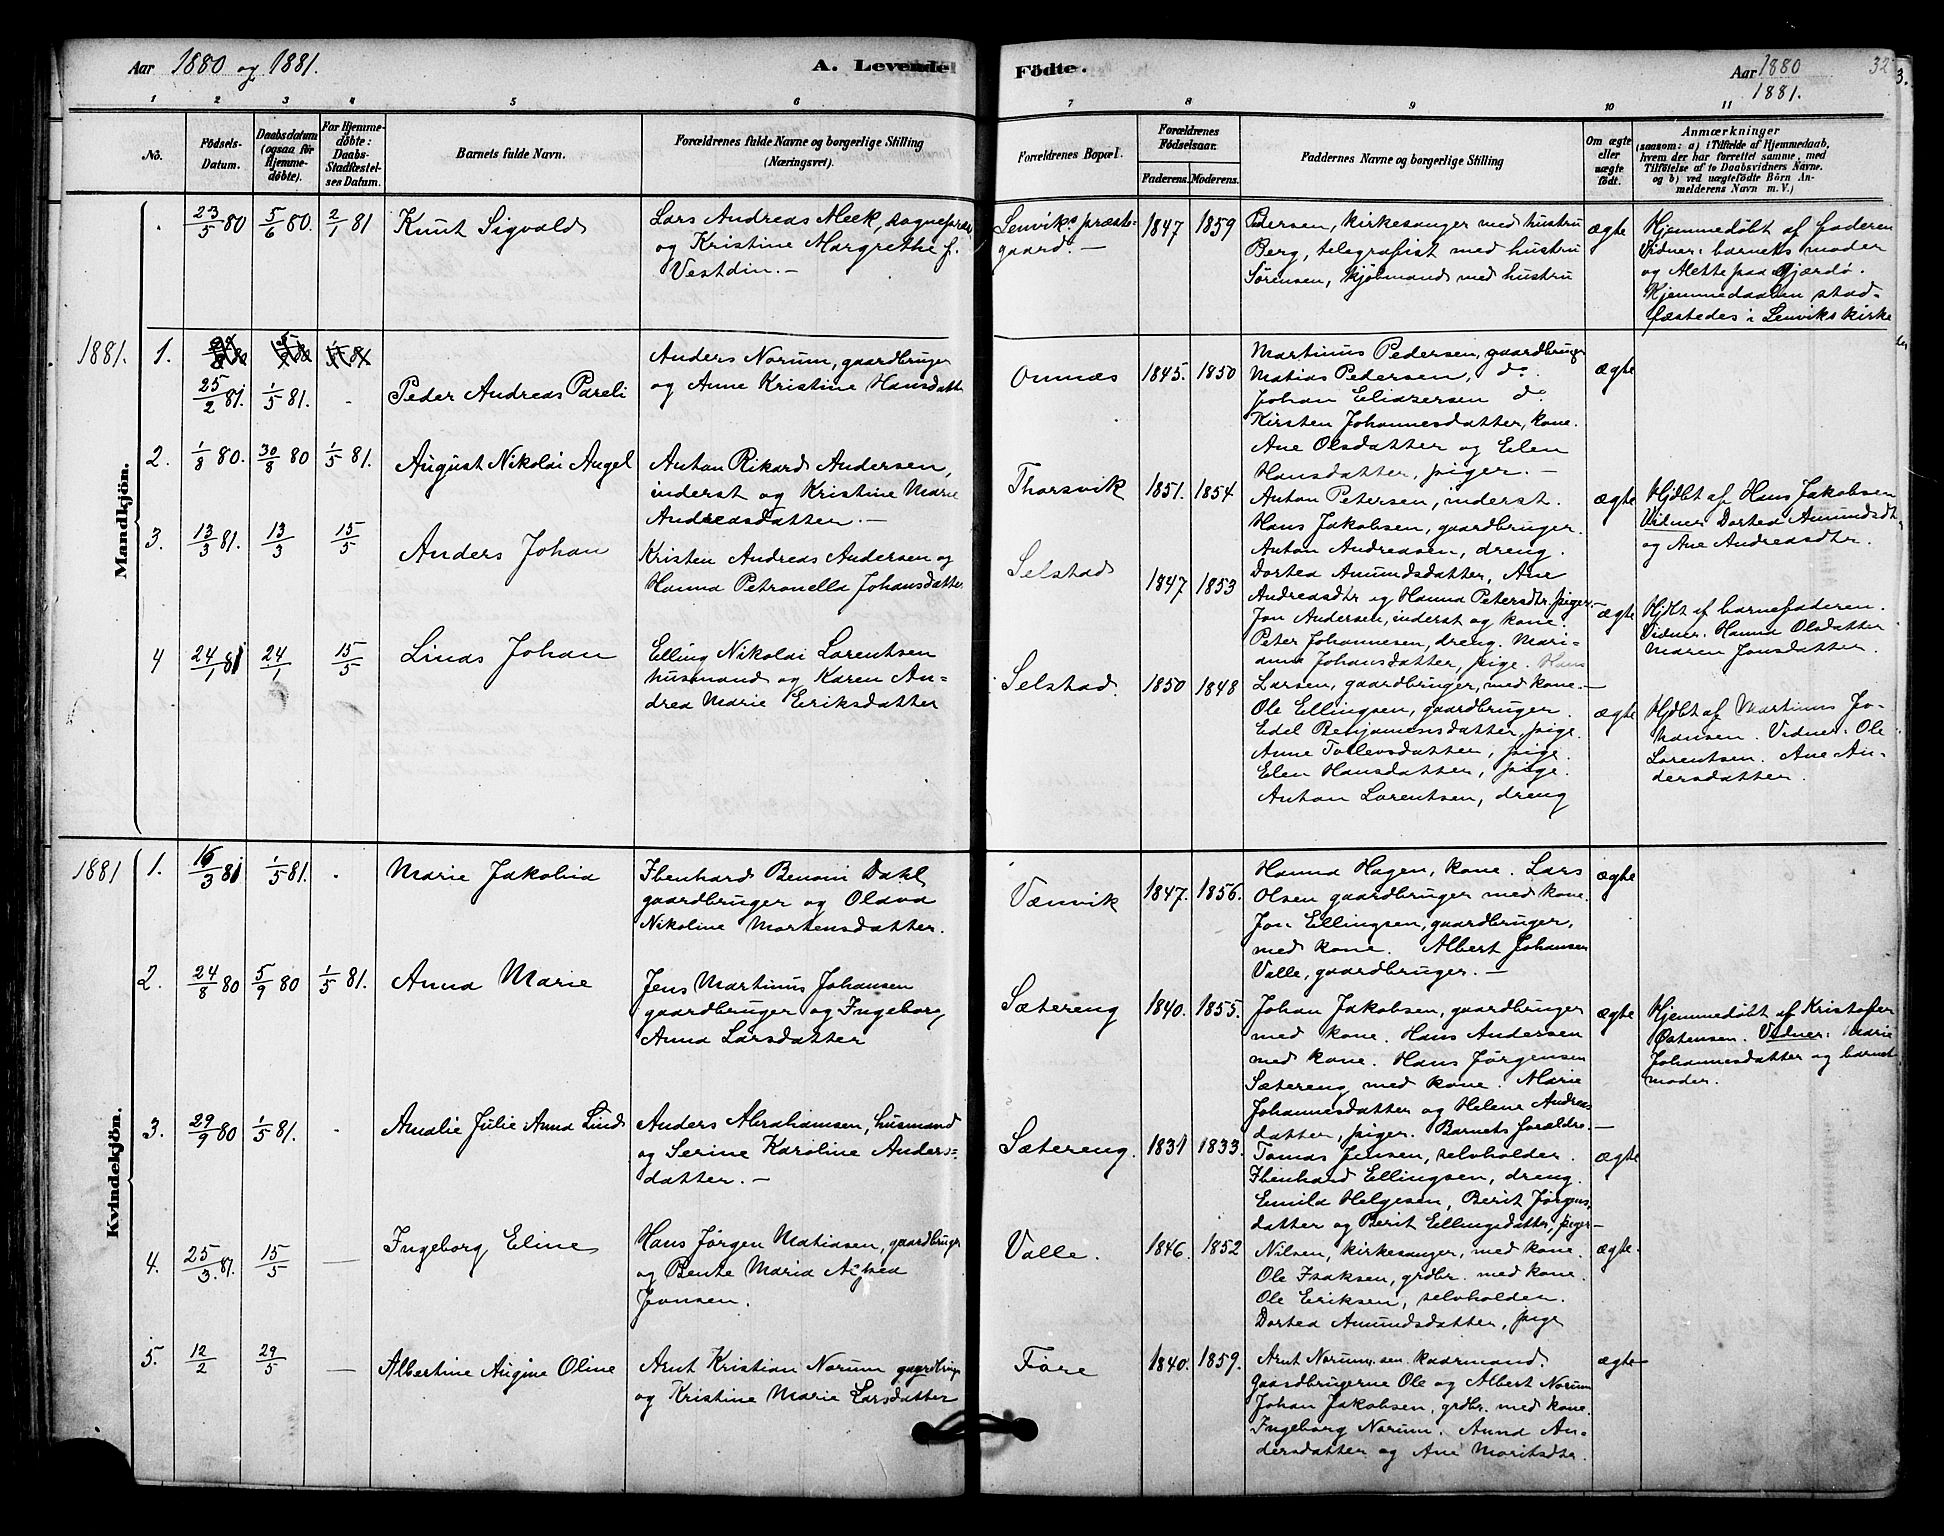 Aar 1880 og 1881.
A. Levende
1 2 3 4 5 6
No.
Födsels-
Datum.
Daabsdatum
(ogsaa för
Hjemme-
döbte).
For Hjemme-
döbte:
Daabs-
Stadfæstel-
ses Datum.
Barnets fulde Navn.
Forældrenes fulde Navne og borgerlige Stilling
(Næringsvei).
. 23/5 80 5/6 80. 2/1 81 Knut Sigvald
Lars Andreas Meek, sognepræst
og Kristine Margrethe f.
Vestdin. —
Mandkjön.
1881. 1.
25/2 81. 1/5 81. - Peder Andreas Pareli
Anders Norum, gaardbruger
og Anne Kristine Hansdatter
2. 1/8 80. 30/8 80 1/5 81. August Nikolai Angel
Anton Rikard Andersen,
inderst og Kristine Marie
Andreasdatter. —
3. 13/3 81. 13/3 15/5 Anders Johan
Kristen Andreas Andersen og
Hanna Petronella Johansdatter
4 24/1 81 24/1 15/5 Linas Johan
Elling Nikolai Lorentsen
husmand og Karen An-
drea Marie Eriksdatter
Kvindekjön.
1881 1. 16/3 81 1/5 81. . Marie Jakobia
Ibenhard Benoni Dahl,
gaardbruger og Olava
Nikoline Mortensdatter.
2. 24/8 80 5/9 80 1/5 81. Anna Marie
Jens Martinus Johansen
gaardbruger og Ingeborg
Anna Larsdatter
3. 29/9 80 1/5 81. - Amalie Julie Anna Lind
Anders Abrahamsen, husmand
og Serine Karoline Anders-
datter. —
4. 25/3 81. 15/5 — Ingeborg Eline
Hans Jørgen Matiasen, gaardbruger
og Bente Maria
Jonsen.
5. 12/2 29/5 — Albertine Augine Oline
Arnt Kristian Norum gaardbruger
og Kristine Marie Larsdatter
Födte.
Aar 1880
1881.
32
7 8 9 10 11
Forældrenes Bopæl.
Forældrenes
Födselsaar.
Faderens. Moderens.
Faddernes Navne og borgerlige Stilling
Om ægte
eller
uægte
födt.
Anmærkninger
(saasom: a) i Tilfælde af Hjemmedaab,
hvem der har forrettet samme, med
Tilföielse af to Daabsvidners Navne.
og b) ved uægtefödte Börn An-
melderens Navn m. V.)
Lenviks præste-
gaard. —
1847 1859
Pedersen, kirkesanger med hustru
Berg, telegrafist med hustru
Sørensen, kjøbmand med hustru
ægte
Hjemmedøbt af faderen
Vidner: barnets moder
og Alette paa Gjærdø.
Hjemmedaaben stad-
fæstedes i Lenviks kirke
Onnæs 1845. 1850
Martinus Pedersen, gaardbruger
Matias Pedersen, do.
Johan Eliazersen do.
Kirsten Johannesdatter, kone.
Ane Olsdatter og Elen
Hansdatter, piger. —
ægte
Thorsvik 1851. 1854
Anton Petersen, inderst.
Hans Jakobsen, gaardbruger.
Anton Andreasen, dreng.
Dortea Amundsdatter, Ane
Andreasdtr og Hanna Petersdtr. piger. —
ægte
Hjdbt af Hans Jakobsen
Vidner Dortea Amundsdt
og Ane Andreasdtr.
Selstad 1847 1853
Jon Andersen, inderst og kone.
Peter Johannesen, dreng. Mari-
anna Johansdatter, pige. Hans
Larsen, gaardbruger, med kone. —
ægte
Hjdbt af barnefaderen.
Vidner: Hanna Olsdatter
Maren Jonsdatter.
Selstad. 1850 1848
Ole Ellingsen, gaardbruger.
Edel Benjaminsdatter, pige.
Anne Tollevsdatter, pige.
Elen Hansdatter, pige.
Anton Lorentsen, dreng
ægte
Hjdbt af Martinus Jo-
hansen. Vidner: Ole
Lorentsen. Ane An-
dersdatter.
Vænvik 1847. 1856.
Hanna Hagen, kone. Lars
Olsen gaardbruger med kone.
Jon Ellingsen, gaardbruger,
med kone. Albert Johansen
Valle, gaardbruger. —
ægte
Sætereng 1840. 1855.
Johan Jakobsen, gaardbruger
med kone. Hans Andersen
med kone. Hans Jørgensen
Sætereng med kone. Marie
Johannesdatter og Helene Andreas
datter, piger. Barnets forældre. —
ægte
Hjemmedøbt af Kristofer
Østensen. Vidner: Marie
Johannesdatter og barnets
moder.
Sætereng. 1831 1833.
Tomas Jensen, selvholder.
Ibenhard Ellingsen, dreng.
Emila Helgesen, Berit Jørgens
datter og Berit Ellingsdatter, piger —
ægte
Valle. 1846. 1852
Nilsen, kirkesanger, med kone.
Ole Isaksen, grdbr. med kone.
Ole Eriksen, selvholder.
Dortea Amundsdatter, pige
ægte.
Føre 1840. 1859.
Arnt Norum, sen. kaarmand.
Gaardbrugerne Ole og Albert Norum
Johan Jakobsen, grdbr. med kone.
Ingeborg Norum. Anna An-
dersdatter og Ane Moritsdtr.
ægte